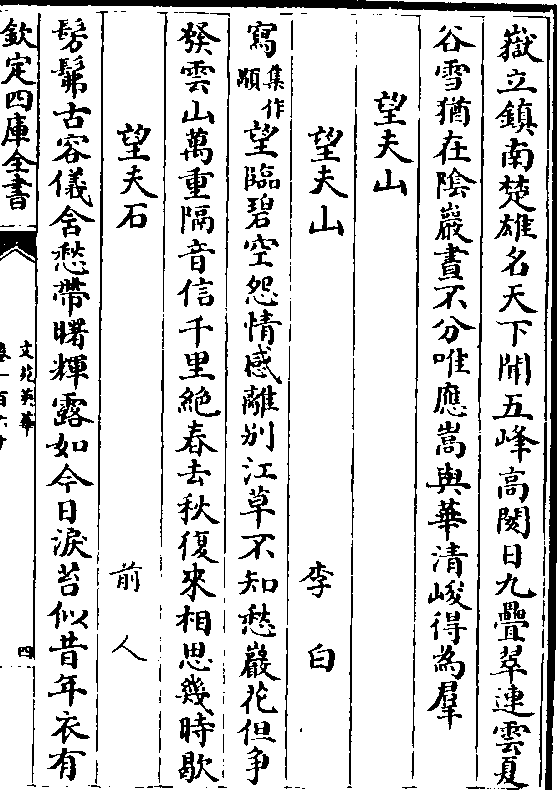 嶽立鎮南楚雄名天下聞五峰高閡日九疊翠連雲夏
谷雪猶在陰巖晝不分唯應嵩與華清峻得為羣
望夫山
望夫山 李白
寫集作顒望臨碧空怨情感離別江草不知愁巖花但争
發雲山萬重隔音信千里絶春去秋復來相思幾時歇
望夫石 前人
髣髴古容儀含愁帶曙輝露如今日淚苔似昔年衣有
欽定四庫全書
文苑英華
卷一百六十
四